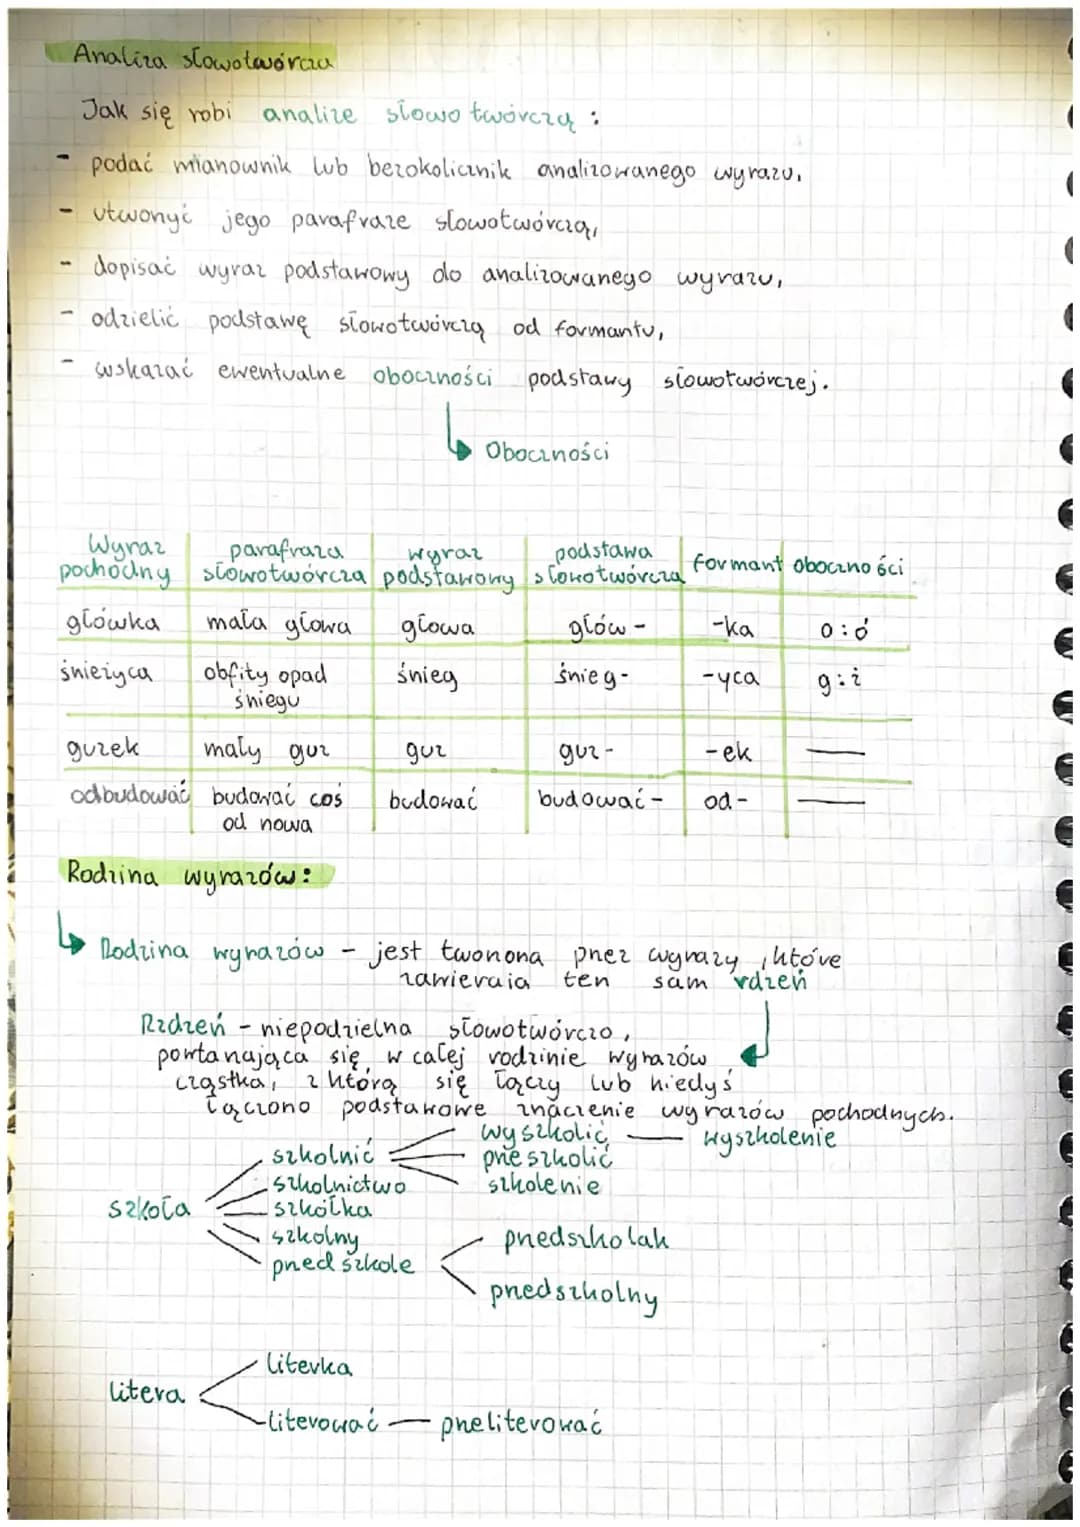 Analiza słowotwórcza
Jak się robi analize słowotwórczą :
- podać mianownik lub bezokolicznik analizowanego wyrazu,
- utworzyć jego parafraze słowotwórczą,
- dopisać wyraz podstawowy do analizowanego wyrazu,
- odzielić podstawę słowotwórczą od formantu,
- wskazać ewentualne oboczności podstawy słowotwórczej.
Oboczności
Wyraz pochodny | parafraza słowotwórcza | wyraz podstawowy | podstawa słowotwórcza | formant | oboczności
główka | mała głowa | głowa | głów - | -ka | o : ó
śnieżyca | obfity opad śniegu | śnieg | śnieg- | -yca | g : ż
guzek | mały guz | guz | guz - | -ek | —
odbudować | budować coś od nowa | budować | budować - | od - | —
Rodzina wyrazów :
Rodzina wyrazów - jest tworzona przez wyrazy, które
zawieraia ten sam rdzeń
Rzdzeń - niepodzielna słowotwórczo,
powtarzająca się w całej rodzinie wyrazów
cząstka, z którą się łączy lub kiedyś
łączono podstawowe znaczenie wyrazów pochodnych.
wyszkolić — wyszkolenie
szkolnić przeszkolić
szkolnictwo szkolenie
szkoła szkółka
szkolny przedszkolak
przedszkole
przedszkolny
literka
litera
literować — przeliterować